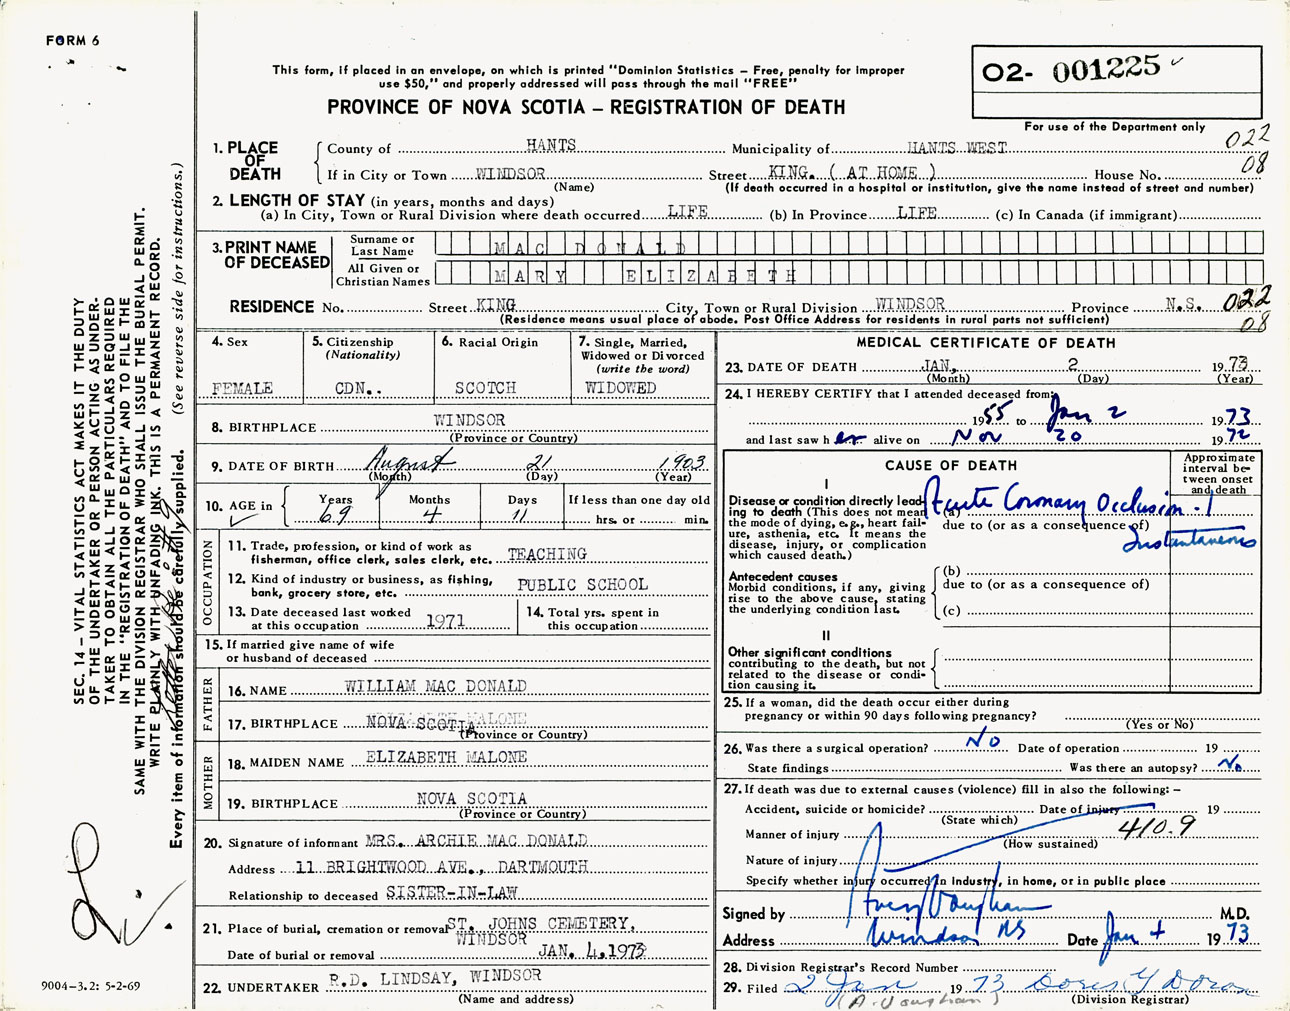 FORM 6
This form, if placed in an envelope, on which is printed "Dominion Statistics – Free, penalty for improper
use $50," and properly addressed will pass through the mail "FREE"
PROVINCE OF NOVA SCOTIA – REGISTRATION OF DEATH
02- 001225
For use of the Department only
022
08
1. PLACE OF DEATH
County of HANTS Municipality of HANTS WEST
If in City or Town WINDSOR Street KING. ( AT HOME ) House No.
(Name) (If death occurred in a hospital or institution, give the name instead of street and number)
2. LENGTH OF STAY (in years, months and days)
(a) In City, Town or Rural Division where death occurred LIFE (b) In Province LIFE (c) In Canada (if immigrant)
3. PRINT NAME OF DECEASED
Surname or Last Name MAC DONALD
All Given or Christian Names MARY ELIZABETH
RESIDENCE No. Street KING City, Town or Rural Division WINDSOR Province N.S. 022
08
(Residence means usual place of abode. Post Office Address for residents in rural parts not sufficient)
4. Sex FEMALE
5. Citizenship (Nationality) CDN..
6. Racial Origin SCOTCH
7. Single, Married, Widowed or Divorced (write the word) WIDOWED
8. BIRTHPLACE WINDSOR
(Province or Country)
9. DATE OF BIRTH August 21 1903
(Month) (Day) (Year)
10. AGE in Years Months Days If less than one day old
69 4 11 hrs. or min.
OCCUPATION
11. Trade, profession, or kind of work as
fisherman, office clerk, sales clerk, etc. TEACHING
12. Kind of industry or business, as fishing,
bank, grocery store, etc. PUBLIC SCHOOL
13. Date deceased last worked
at this occupation 1971
14. Total yrs. spent in
this occupation
15. If married give name of wife
or husband of deceased
FATHER
16. NAME WILLIAM MAC DONALD
17. BIRTHPLACE NOVA SCOTIA
(Province or Country)
MOTHER
18. MAIDEN NAME ELIZABETH MALONE
19. BIRTHPLACE NOVA SCOTIA
(Province or Country)
20. Signature of informant MRS. ARCHIE MAC DONALD
Address 11 BRIGHTWOOD AVE., DARTMOUTH
Relationship to deceased SISTER-IN-LAW
21. Place of burial, cremation or removal ST. JOHNS CEMETERY,
WINDSOR
Date of burial or removal JAN. 4, 1973
22. UNDERTAKER R.D. LINDSAY, WINDSOR
(Name and address)
MEDICAL CERTIFICATE OF DEATH
23. DATE OF DEATH JAN. 2 1973
(Month) (Day) (Year)
24. I HEREBY CERTIFY that I attended deceased from:
1955 to Jan 2 1973
and last saw her alive on Nov 20 1972
CAUSE OF DEATH
Approximate interval between onset and death
I
Disease or condition directly leading to death (This does not mean
the mode of dying, e.g., heart failure, asthenia, etc. It means the
disease, injury, or complication
which caused death.)
(a) Acute Coronary Occlusion - 1
due to (or as a consequence of)
Instantaneous
Antecedent causes
Morbid conditions, if any, giving
rise to the above cause, stating
the underlying condition last.
(b)
due to (or as a consequence of)
(c)
II
Other significant conditions
contributing to the death, but not
related to the disease or condition causing it.
25. If a woman, did the death occur either during
pregnancy or within 90 days following pregnancy?
(Yes or No)
26. Was there a surgical operation? No Date of operation 19
State findings Was there an autopsy? No
27. If death was due to external causes (violence) fill in also the following: –
Accident, suicide or homicide? Date of injury 19
(State which)
Manner of injury 410.9
(How sustained)
Nature of injury
Specify whether injury occurred in industry, in home, or in public place
Signed by Avery Vaughan M.D.
Address Windsor NS Date Jan 4 1973
28. Division Registrar's Record Number
29. Filed 2 Jan 1973 Doris Y
(A. Vaughan) (Division Registrar)
SEC. 14 – VITAL STATISTICS ACT MAKES IT THE DUTY
OF THE UNDERTAKER OR PERSON ACTING AS UNDER-
TAKER TO OBTAIN ALL THE PARTICULARS REQUIRED
IN THE "REGISTRATION OF DEATH" AND TO FILE THE
SAME WITH THE DIVISION REGISTRAR WHO SHALL ISSUE THE BURIAL PERMIT.
WRITE PLAINLY WITH UNFADING INK. THIS IS A PERMANENT RECORD.
Every item of information should be carefully supplied. (See reverse side for instructions.)
9004-3.2: 5-2-69